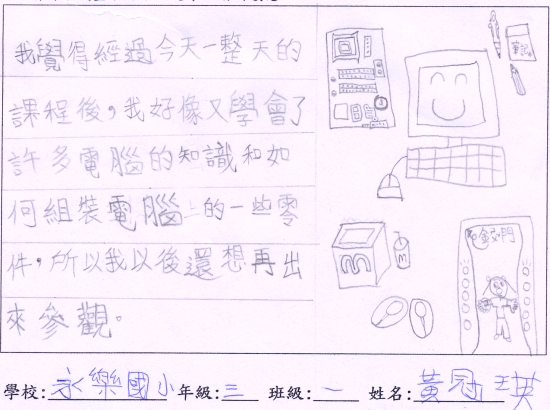 我覺得經過今天一整天的
課程後，我好像又學會了
許多電腦的知識和如
何組裝電腦上的一些零
件，所以我以後還想再出
來參觀。
筆記
門
學校：永樂國小年級：三 班級：一 姓名：黃冠琪